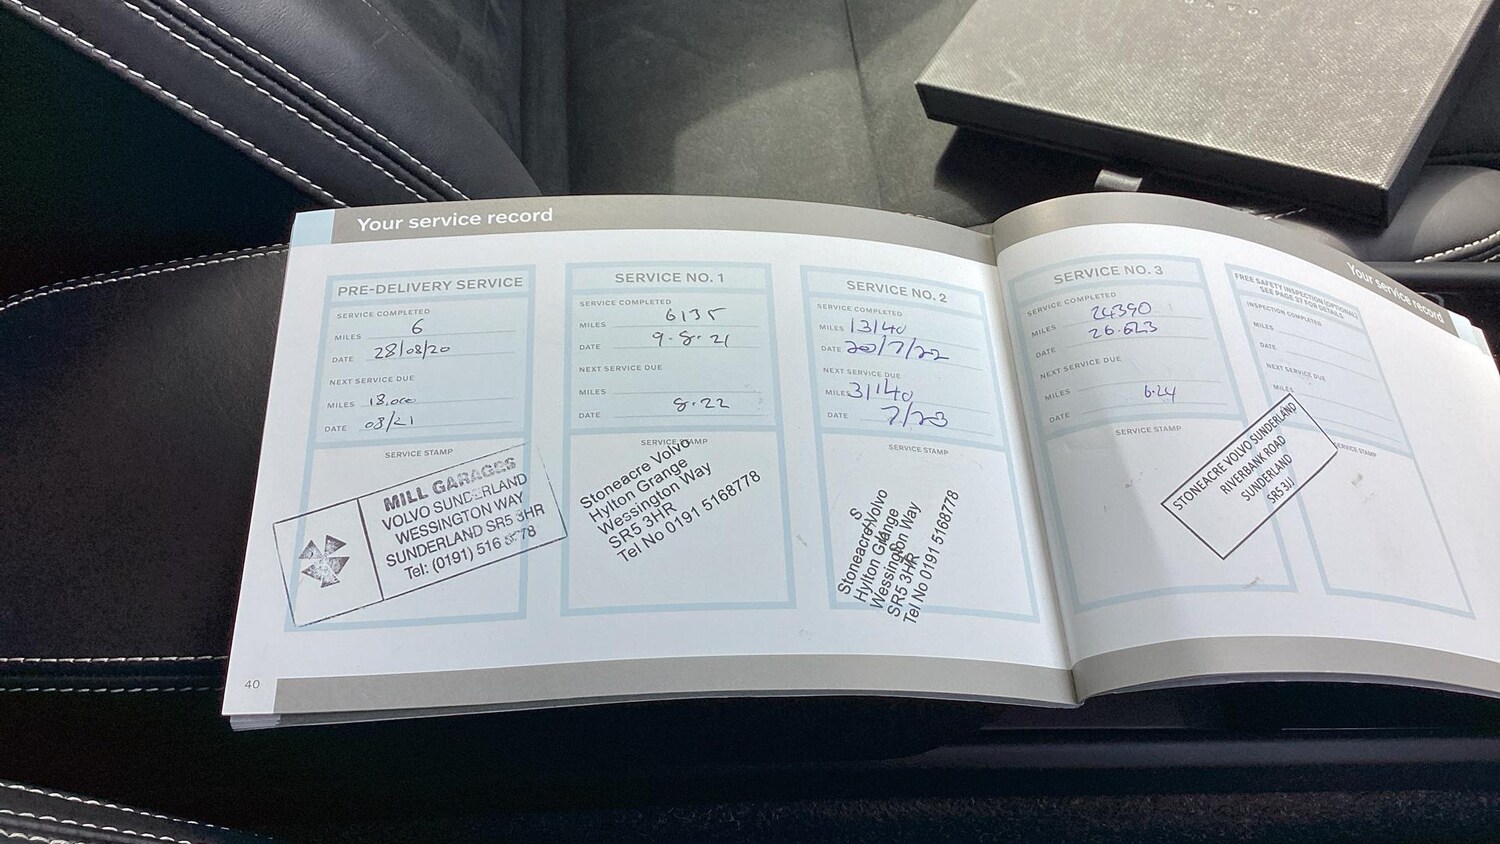 Your service record
PRE-DELIVERY SERVICE
SERVICE COMPLETED
MILES 6
DATE 28/08/20
NEXT SERVICE DUE
MILES 18,000
DATE 08/21
SERVICE STAMP
MILL GARAGES
VOLVO SUNDERLAND
WESSINGTON WAY
SUNDERLAND SR5 3HR
Tel: (0191) 516 8778
SERVICE NO. 1
SERVICE COMPLETED
MILES 6135
DATE 9.8.21
NEXT SERVICE DUE
MILES
DATE 8.22
SERVICE STAMP
Stoneacre Volvo
Hylton Grange
Wessington Way
SR5 3HR
Tel No 0191 5168778
SERVICE NO. 2
SERVICE COMPLETED
MILES 13140
DATE 20/7/22
NEXT SERVICE DUE
MILES 31140
DATE 7/23
SERVICE STAMP
Stoneacre Volvo
Hylton Grange
Wessington Way
SR5 3HR
Tel No 0191 5168778
40
Your service record
SERVICE NO. 3
SERVICE COMPLETED
MILES 24390
DATE 26.6.23
NEXT SERVICE DUE
MILES
DATE 6.24
SERVICE STAMP
STONEACRE VOLVO SUNDERLAND
RIVERBANK ROAD
SUNDERLAND
SR5 3JJ
FREE SAFETY INSPECTION (OPTIONAL)
SEE PAGE 37 FOR DETAILS
INSPECTION COMPLETED
MILES
DATE
NEXT SERVICE DUE
MILES
SERVICE STAMP